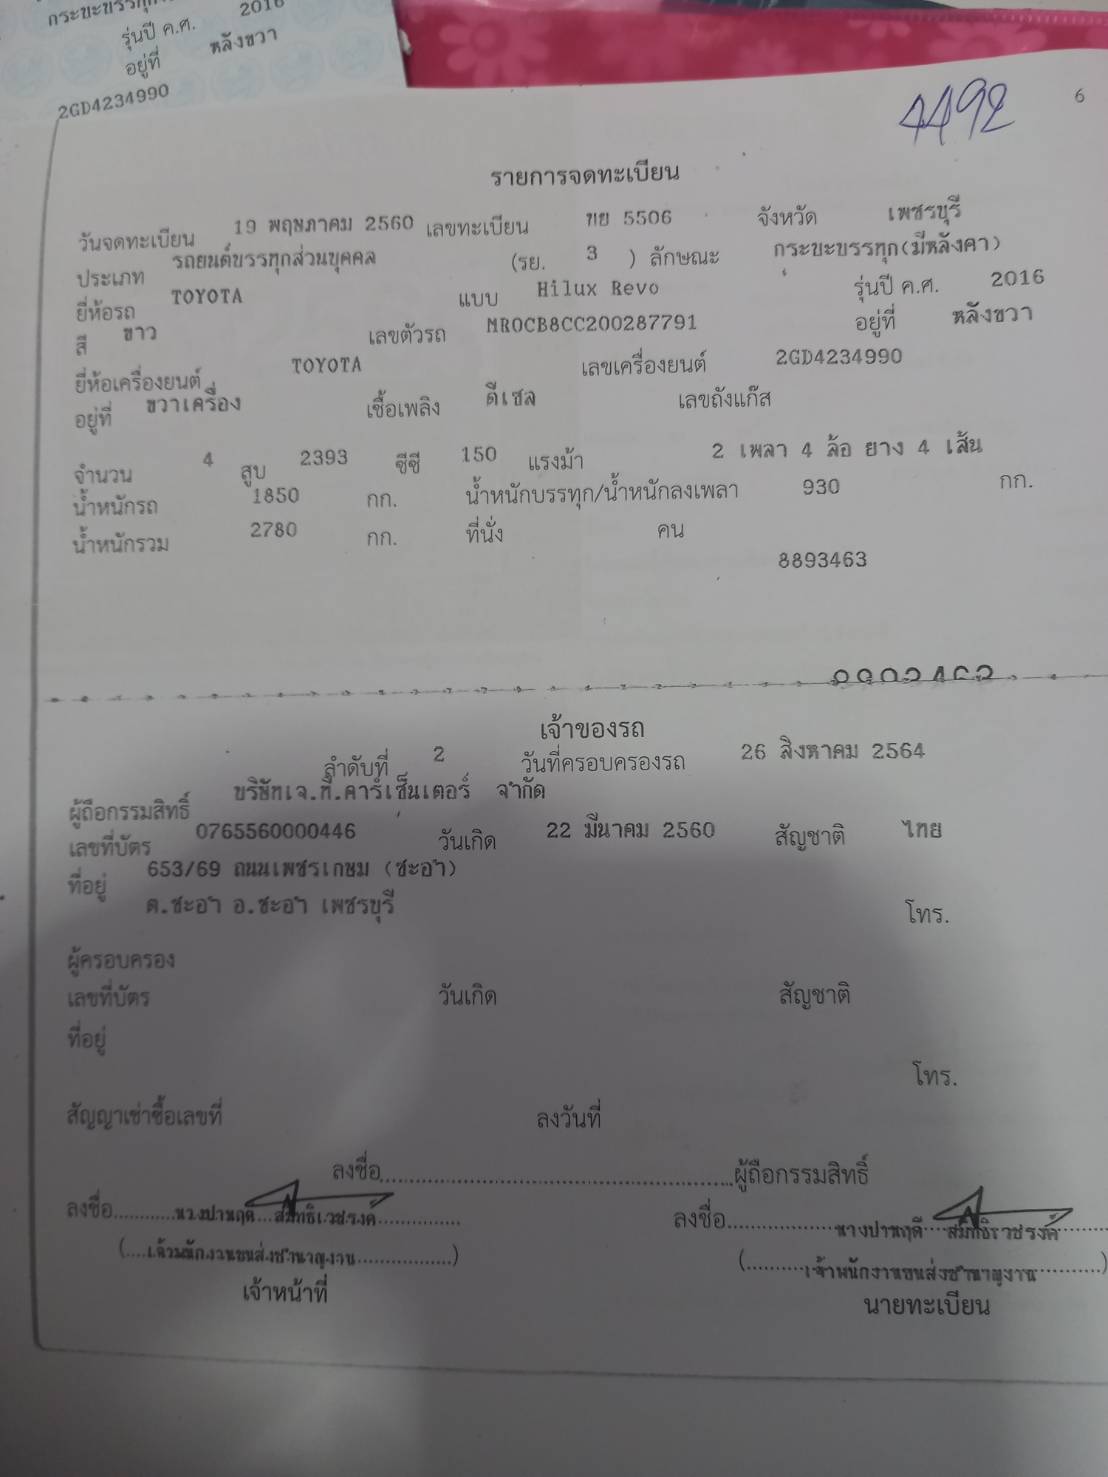 กระบะบรรทุก
รุ่นปี ค.ศ. 2016
อยู่ที่ หลังขวา
2GD4234990
4492
6
รายการจดทะเบียน
วันจดทะเบียน 19 พฤษภาคม 2560 เลขทะเบียน 5506 จังหวัด เพชรบุรี
ประเภท รถยนต์บรรทุกส่วนบุคคล (รย. 3 ) ลักษณะ กระบะบรรทุก(มีหลังคา)
ยี่ห้อรถ TOYOTA แบบ Hilux Revo รุ่นปี ค.ศ. 2016
สี ขาว เลขตัวรถ MR0CB8CC200287791 อยู่ที่ หลังขวา
ยี่ห้อเครื่องยนต์ TOYOTA เลขเครื่องยนต์ 2GD4234990
อยู่ที่ ขวาเครื่อง เชื้อเพลิง ดีเซล เลขถังแก๊ส
จำนวน 4 สูบ 2393 ซีซี 150 แรงม้า 2 เพลา 4 ล้อ ยาง 4 เส้น
น้ำหนักรถ 1850 กก. น้ำหนักบรรทุก/น้ำหนักลงเพลา 930 กก.
น้ำหนักรวม 2780 กก. ที่นั่ง คน
8893463
เจ้าของรถ
ลำดับที่ 2 วันที่ครอบครองรถ 26 สิงหาคม 2564
ผู้ถือกรรมสิทธิ์ บริษัทเจ.ที.คาร์เซ็นเตอร์ จำกัด
เลขที่บัตร 0765560000446 วันเกิด 22 มีนาคม 2560 สัญชาติ ไทย
ที่อยู่ 653/69 ถนนเพชรเกษม (ชะอำ)
ต.ชะอำ อ.ชะอำ เพชรบุรี
โทร.
ผู้ครอบครอง
เลขที่บัตร วันเกิด สัญชาติ
ที่อยู่
โทร.
สัญญาเช่าซื้อเลขที่ ลงวันที่
ลงชื่อ ผู้ถือกรรมสิทธิ์
ลงชื่อ นางปานฤดี สมิทธิเวชรงค์ ลงชื่อ นางปานฤดี สมิทธิเวชรงค์
(....เจ้าพนักงานขนส่งชำนาญงาน....) (....เจ้าพนักงานขนส่งชำนาญงาน....)
เจ้าหน้าที่ นายทะเบียน